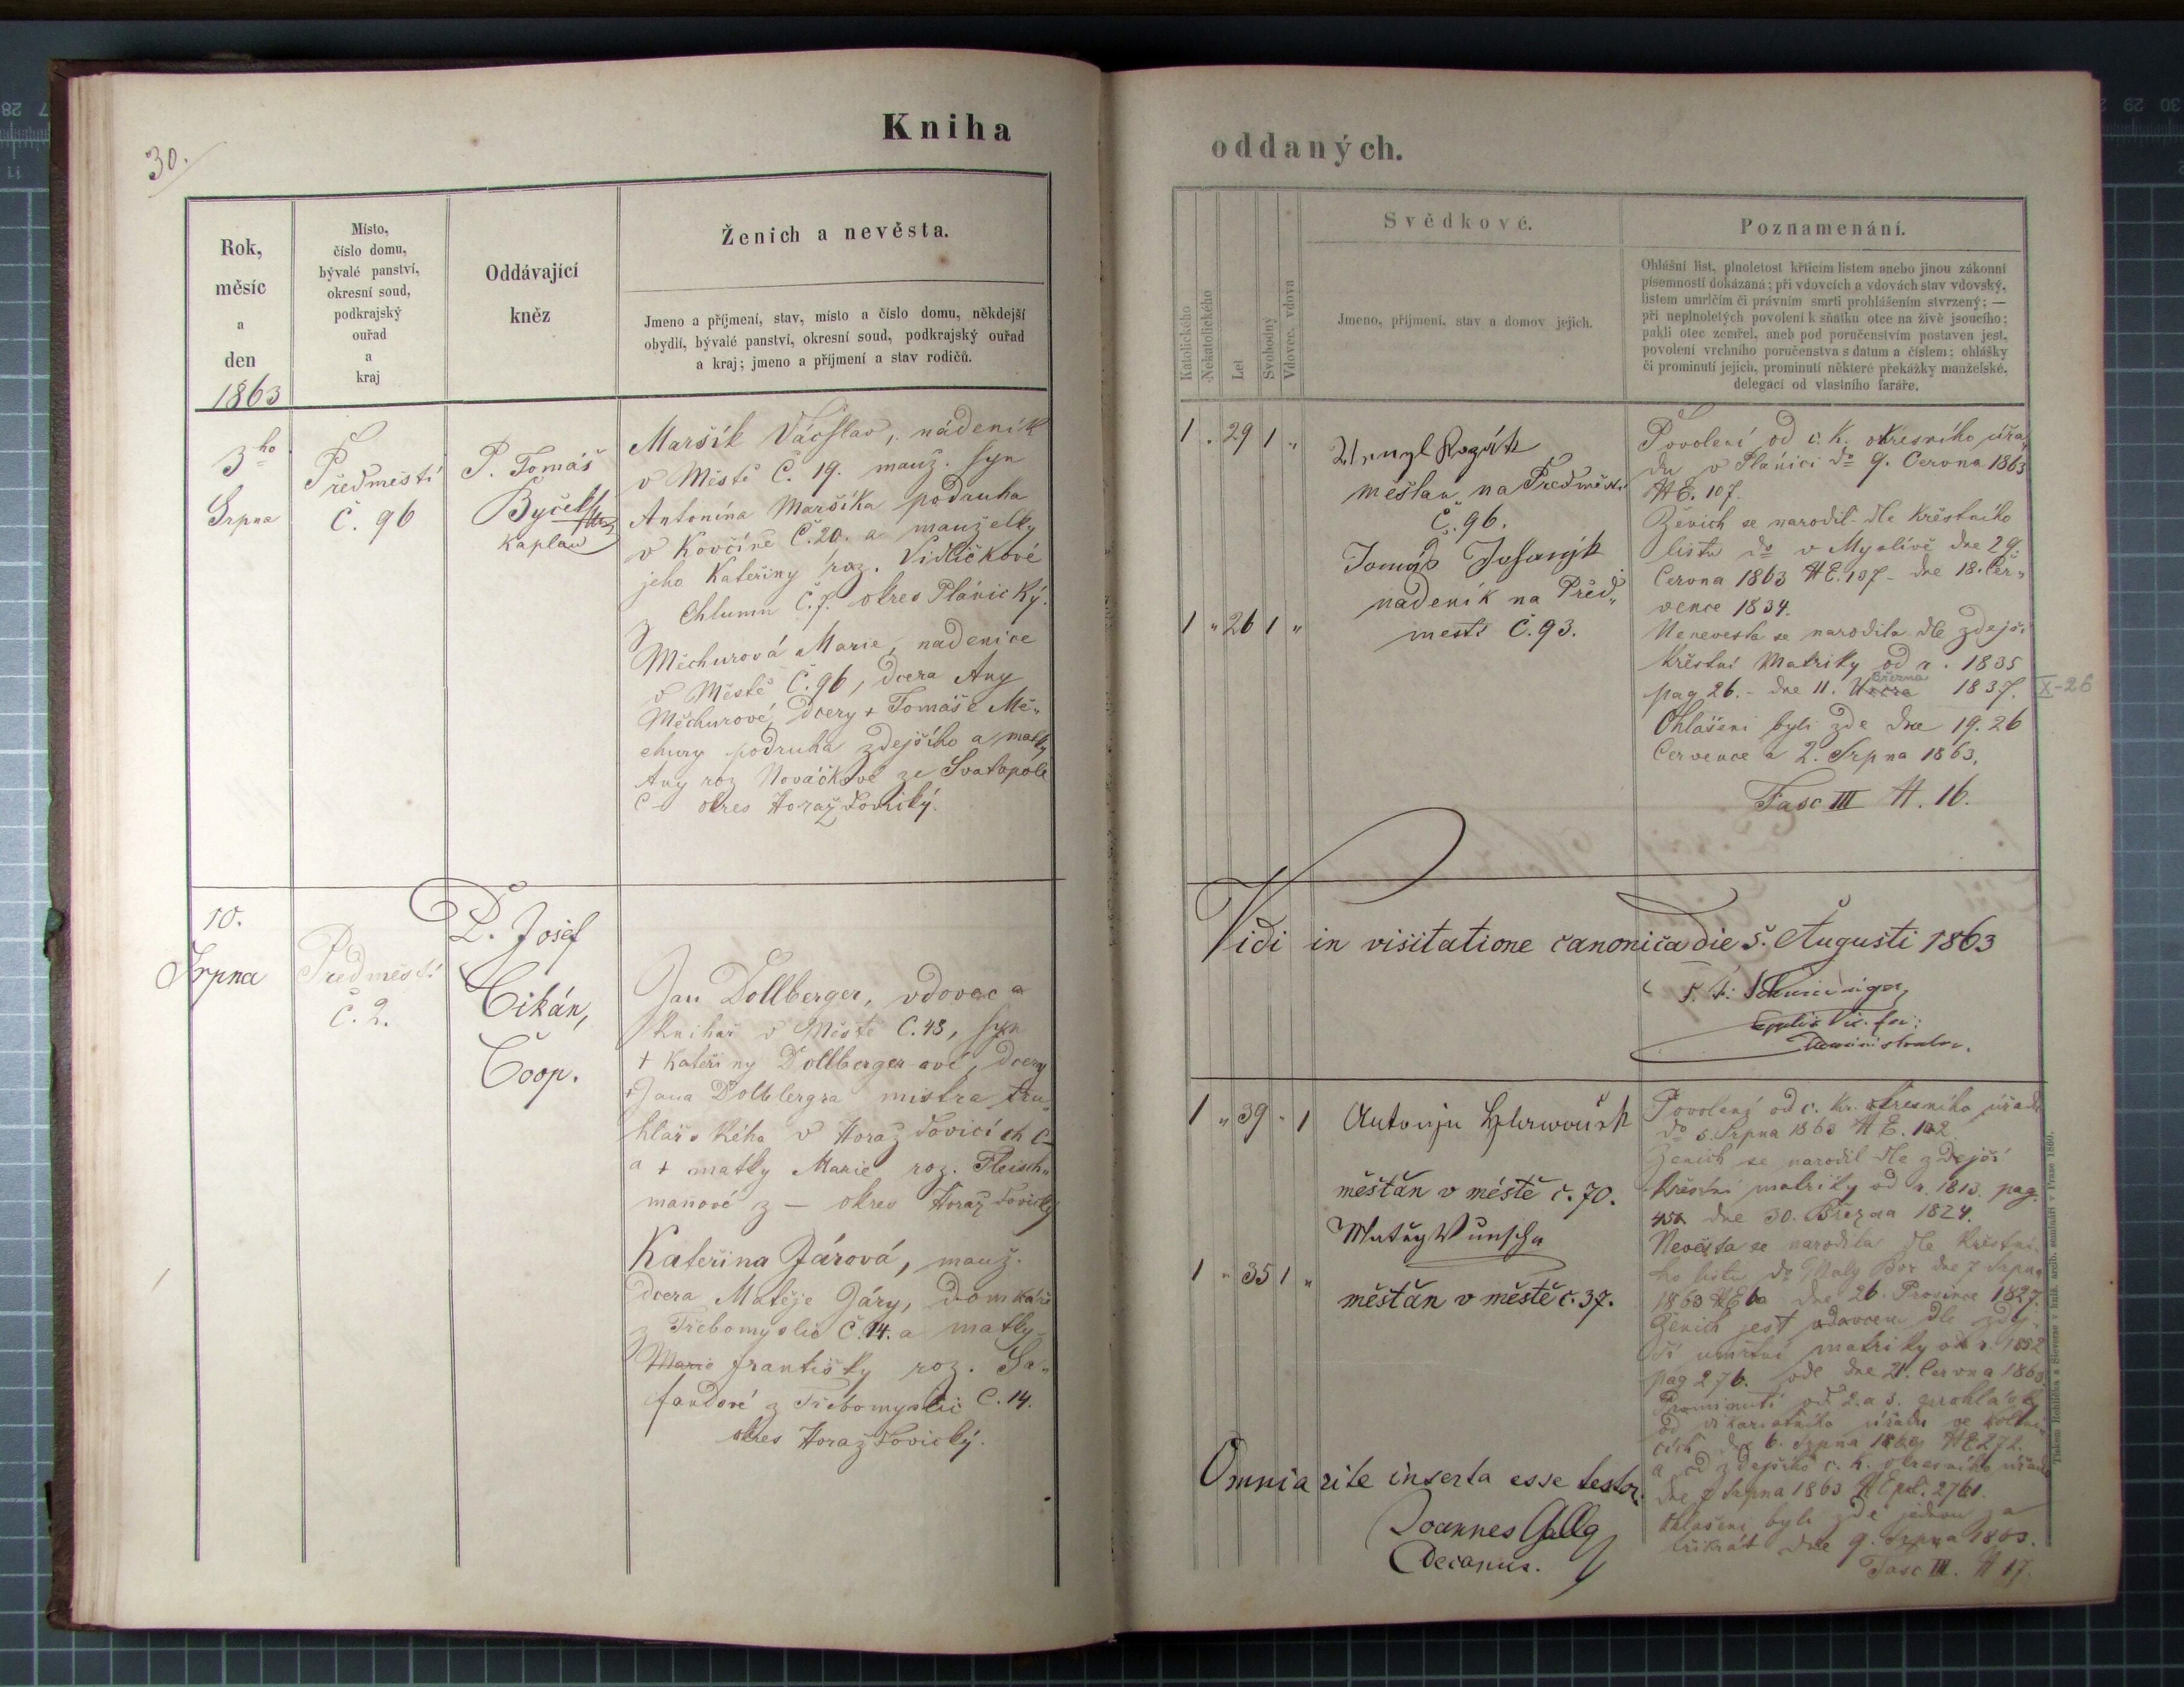 30.
Kniha
Rok,
měsíc
a
den
1863
Místo,
číslo domu,
bývalé panství,
okresní soud,
podkrajský
ouřad
a
kraj
Oddávající
kněz
Ženich a nevěsta.
Jmeno a příjmení, stav, místo a číslo domu, někdejší
obydlí, bývalé panství, okresní soud, podkrajský ouřad
a kraj; jmeno a příjmení a stav rodičů.
3ho
Srpna
Předměstí
Č. 96
P. Tomáš
Byček
kaplan
Maršík Václav, nádeník
v Městě Č. 19. manž. syn
Antonína Maršíka podruha
v Kovčíně Č. 20. a manželky
jeho Kateřiny roz. Vidličkové
z Chlumu Č. 7. okres Plánický.
Měchurová Marie, nadenice
v Městě Č. 96, dcera Any
Měchurové, dcery + Tomáše Mě„
chury podruha zdejšího a matky
Any roz Nováčkové ze Svatopole
Č – okres Horažďovický.
10.
Srpna
Předměstí
č. 2.
P. Josef
Cikán,
Coop.
Jan Dollberger, vdovec a
knihař v Městě Č. 43, syn
+ Kateřiny Dollbergerové, dcery
+ Jana Dollbergra mistra tru„
hlářského v Horažďovicích č –
a + matky Marie roz. Fleisch„
manové z — okres Horažďovický
Kateřina Járová, manž.
dcera Matěje Járy, domkáře
z Třebomyslic Č. 14. a matky
Marie Františky roz. Ša„
fandové z Třebomyslic Č. 14.
okres Horažďovický.
oddaných.
Katolického
Nekatolického
Let
Svobodný
Vdovec, vdova
Svědkové.
Jmeno, příjmení, stav a domov jejich.
Poznamenání.
Ohlášní list, plnoletost křticím listem anebo jinou zákonní
písemností dokázaná; při vdovcích a vdovách stav vdovský,
listem umrlčím či právním smrti prohlášením stvrzený; —
při neplnoletých povolení k sňatku otce na živě jsoucího;
pakli otec zemřel, aneb pod poručenstvím postaven jest,
povolení vrchního poručenstva s datum a číslem; ohlášky
či prominutí jejich, prominutí některé překážky manželské,
delegací od vlastního faráře.
1 „ 29 1 „
měšťan na Předměstí
Č. 96.
Tomáš
nadeník na Před„
městí Č. 93.
1 „ 26 1 „
Povolení od c. k. okresního úřa„
du v Plánici do 9. Června 1863
NE. 107.
Ženich se narodil dle křestního
listu do v Myslívě dne 29.
Června 1863 NE. 137 – dne 18. Čer„
vence 1834.
Nenevesta se narodila dle zdejší
křestní Matriky od r. 1835
pag 26. – dne 11. Února března 1837. X-26
Ohlášeni byli zde dne 19. 26
Července a 2. Srpna 1863.
Fasc III N. 16.
Vidi in visitatione canonica die 5. Augusti 1863
1 „ 39 „ 1
Antonín
měšťan v městě č. 70.
Matěj Wunsch
1 „ 35 1 „
měšťan v městě č. 37.
Povolení od c. kr. okresního úřadu
do 5. Srpna 1863 NE. 102
Ženich se narodil dle zdejší
křestní matriky od r. 1813. pag.
dne 30. Března 1824.
Nevěsta se narodila dle křestní„
ho listu do Malý Bor dne 7 Srpna
1863 dne 26. Prosince 1827.
Ženich jest vdovcem dle zdej„
ší umrtní matriky od r. 1852
pag 276. dne 21. Června 1863
Prominutí od 2. a 3. prohlášky
od vikariatního úřadu ve
dne 6. Srpna 1863 NE 272.
a od zdejšího c. k. okresního úřadu
dne 7 Srpna 1863 2761.
Ohlášeni byli zde jednou za
třikrát dne 9. Srpna 1863.
Fasc III. N 17.
Omnia rite inserta esse testor.
Joannes
Decanus.